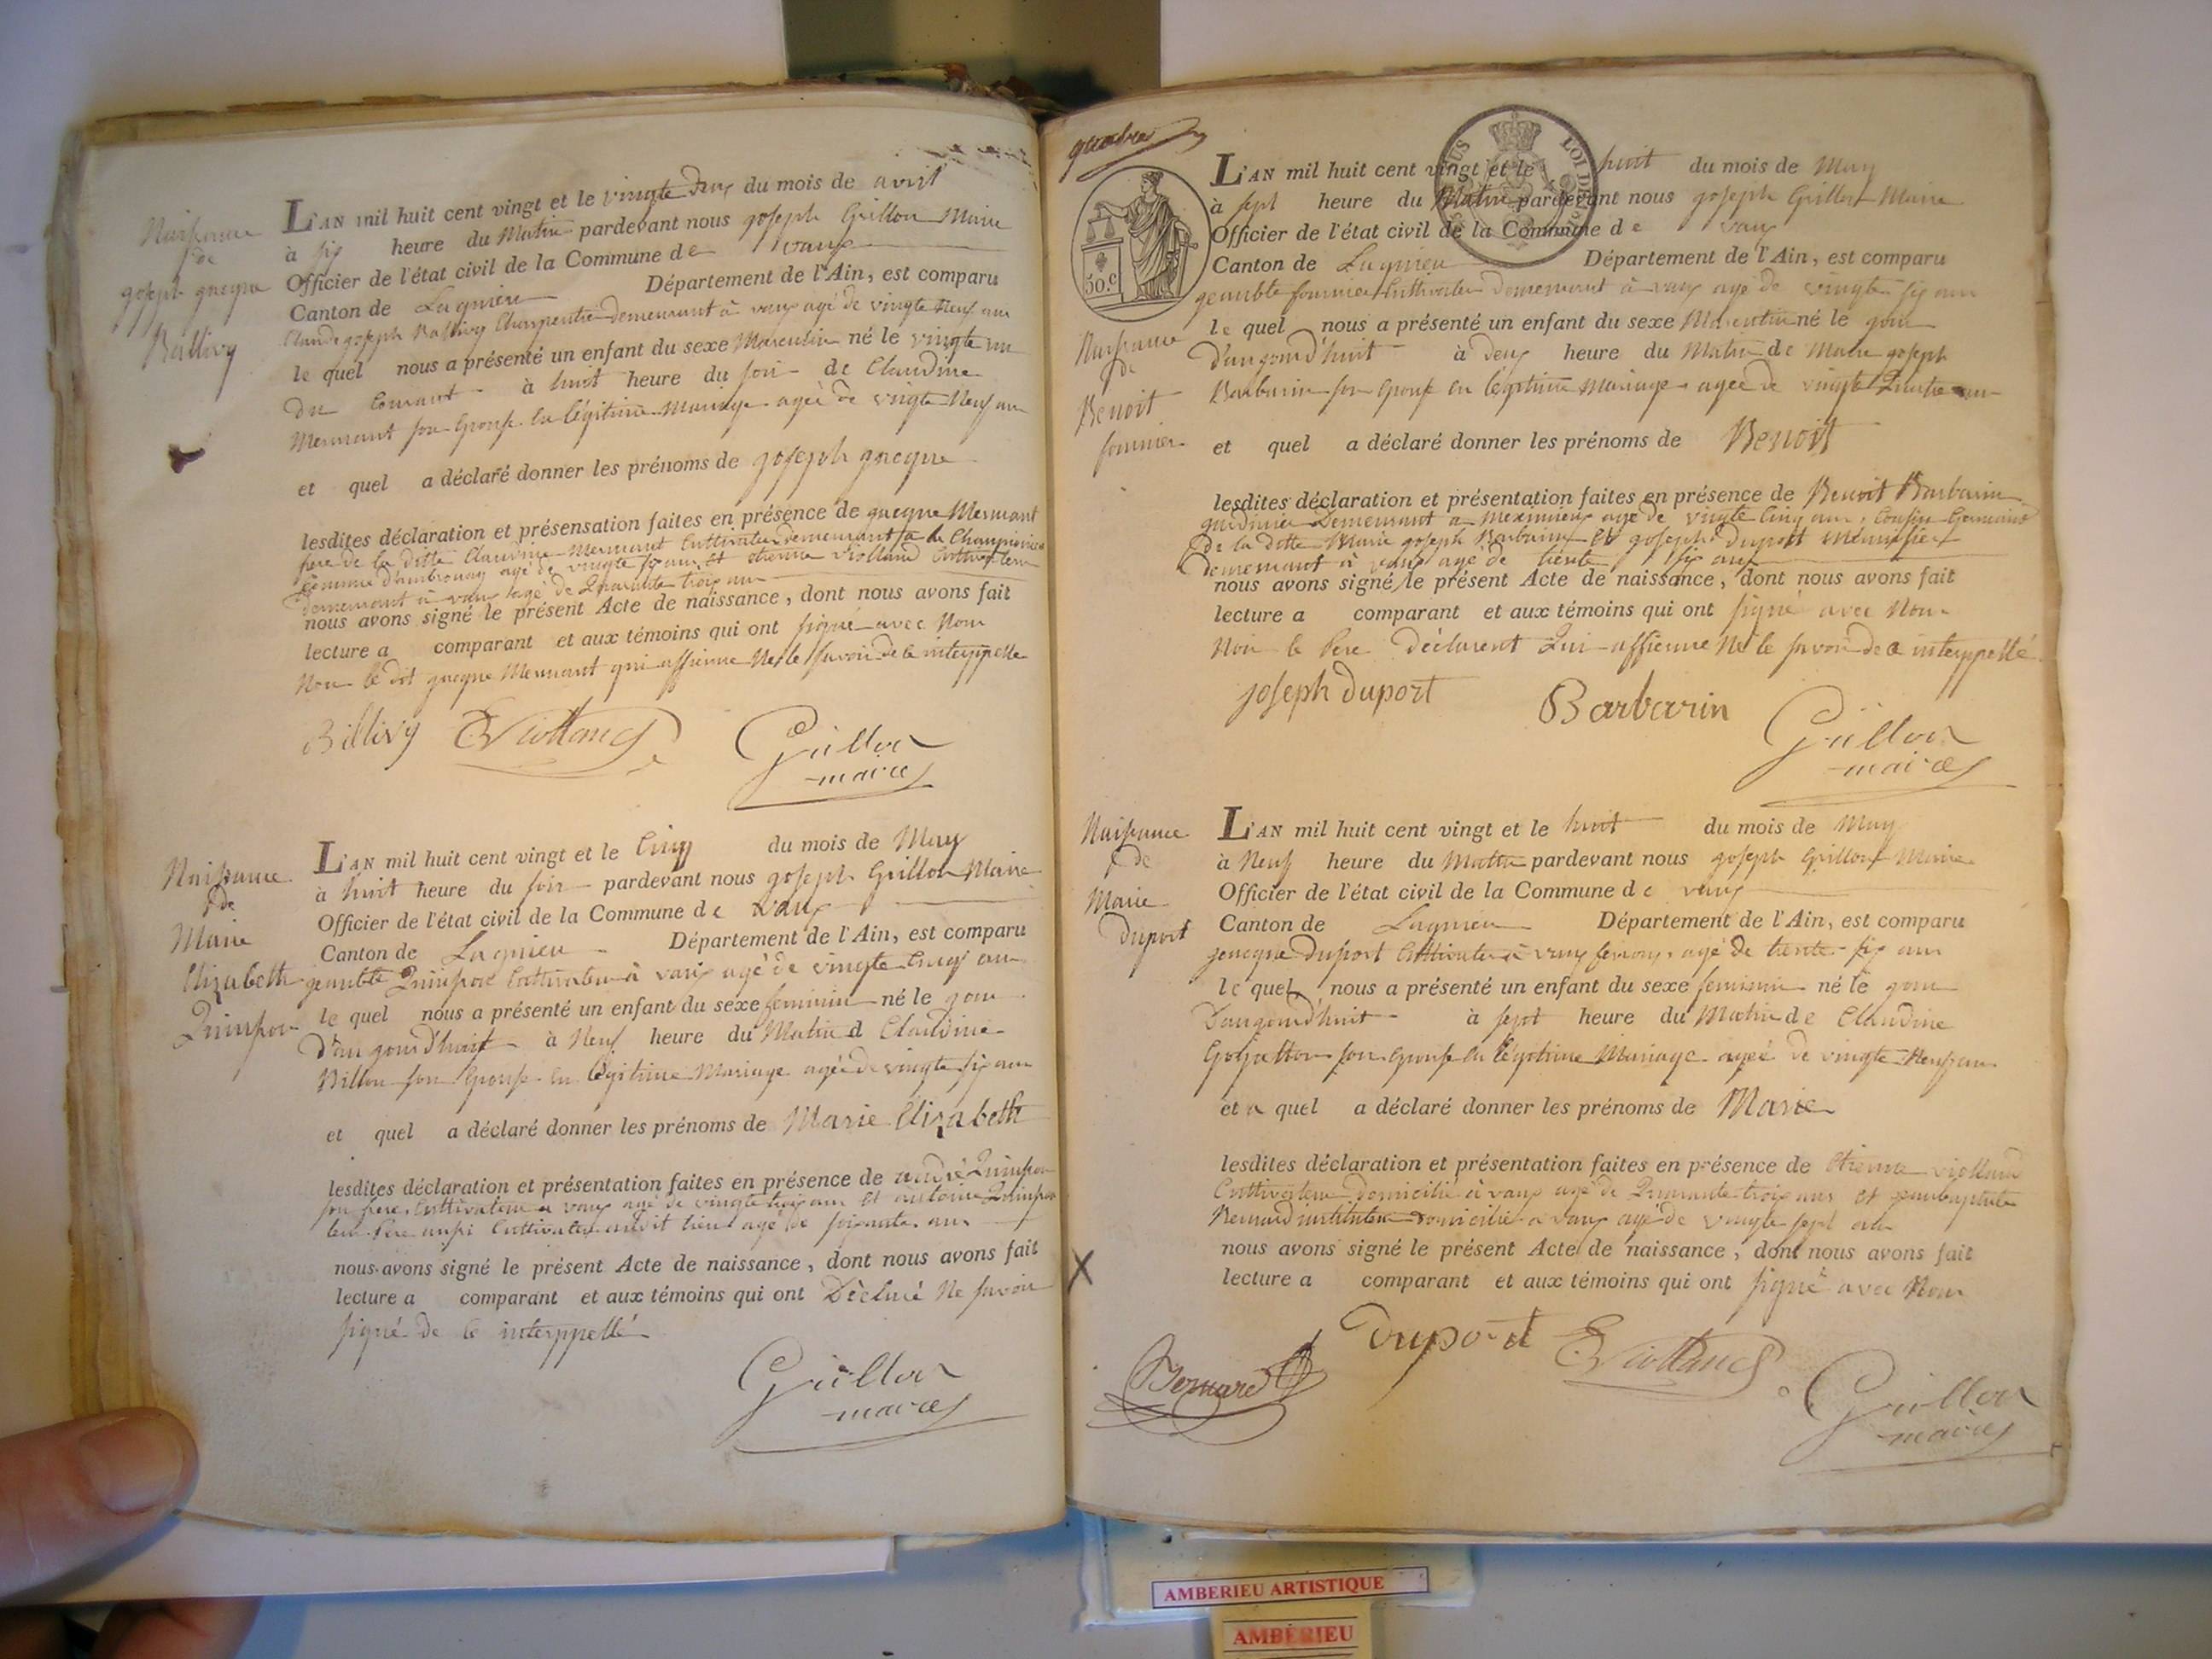 Naissance
de
joseph jacque
Ballivy
L'AN mil huit cent vingt et le vingte deux du mois de avril
à six heure du Matin pardevant nous joseph Grillon Maire
Officier de l'état civil de la Commune de vaux
Canton de Lagnieu Département de l'Ain, est comparu
Claude joseph Ballivy Charpentier demeurant à vaux agé de vingte neuf ans
le quel nous a présenté un enfant du sexe Masculin né le vingte un
du Courant à huit heure du soir de Claudine
Mermant son Epouse en légitime Mariage agée de vingte Neuf ans
et quel a déclaré donner les prénoms de joseph jacque
lesdites déclaration et présensation faites en présence de jacque Mermant
frere de la ditte Claudine Mermant Cultivateur demeurant à
Commune d'ambronay agé de vingte six ans et etienne Violland Cultivateur
demeurant à vaux agé de Quarante trois ans
nous avons signé le présent Acte de naissance, dont nous avons fait
lecture a comparant et aux témoins qui ont signé avec Nous
Non le dit jacque Mermant qui affirme Ne le savoir de ce interppellé
Billivy EViolland Grillon
maire
Naissance
de
Marie
Elizabeth
Quinson
L'AN mil huit cent vingt et le Cinq du mois de May
à huit heure du soir pardevant nous joseph Grillon Maire
Officier de l'état civil de la Commune de vaux
Canton de Lagnieu Département de l'Ain, est comparu
Quinson Cultivateur à vaux agé de vingte Cinq ans
le quel nous a présenté un enfant du sexe feminin né le jour
d'aujourd'huit à Neuf heure du Matin d Claudine
Billon son Epouse en légitime Mariage agée de vingte six ans
et quel a déclaré donner les prénoms de Marie Elizabeth
lesdites déclaration et présentation faites en présence de andré Quinson
son frere, Cultivateur a vaux agé de vingte trois ans et antoine Quinson
leur Pere aussi Cultivateur audit lieu agé de soixante ans
nous avons signé le présent Acte de naissance, dont nous avons fait
lecture a comparant et aux témoins qui ont Déclaré Ne savoir
signé de ce interppellé
Grillon
maire
quatre
50.c
LOI DE
Naissance
de
Benoit
fournier
L'AN mil huit cent vingt et le huit du mois de May
à sept heure du Matin pardevant nous joseph Grillon Maire
Officier de l'état civil de la Commune de vaux
Canton de Lagnieu Département de l'Ain, est comparu
fournier Cultivateur demeurant à vaux agé de vingte six ans
le quel nous a présenté un enfant du sexe Masculin né le jour
d'aujourd'huit à deux heure du Matin de Marie joseph
Barbarin son Epouse en légitime Mariage agée de vingte Quatre ans
et quel a déclaré donner les prénoms de Benoit
lesdites déclaration et présentation faites en présence de Benoit Barbarin
jardinier Demeurant a Meximieux agé de vingte Cinq ans, Cousin Germain
de la ditte Marie joseph Barbarin et joseph Duport Menuisier
demeurant à vaux agé de trente six ans
nous avons signé le présent Acte de naissance, dont nous avons fait
lecture a comparant et aux témoins qui ont signé avec Nous
Non le Pere déclarent Qui affirme Ne le savoir de ce interppellé
joseph Duport Barbarin Grillon
maire
Naissance
de
Marie
Duport
L'AN mil huit cent vingt et le huit du mois de May
à Neuf heure du Matin pardevant nous joseph Grillon Maire
Officier de l'état civil de la Commune de vaux
Canton de Lagnieu Département de l'Ain, est comparu
Duport Cultivateur à vaux fevroux agé de trente six ans
le quel nous a présenté un enfant du sexe feminin né le jour
D'aujourd'huit à sept heure du Matin de Claudine
son Epouse en légitime Mariage agée de vingte Neuf ans
et a quel a déclaré donner les prénoms de Marie
lesdites déclaration et présentation faites en présence de etienne violland
Cultivateur domicilié à vaux agé de Quarante trois ans et jeanbaptiste
Bernard instituteur domicilié a vaux agé de vingte sept ans
nous avons signé le présent Acte de naissance, dont nous avons fait
lecture a comparant et aux témoins qui ont signé avec Nous
Duport EViolland
Bernard Grillon
maire
AMBERIEU ARTISTIQUE
AMBÉRIEU